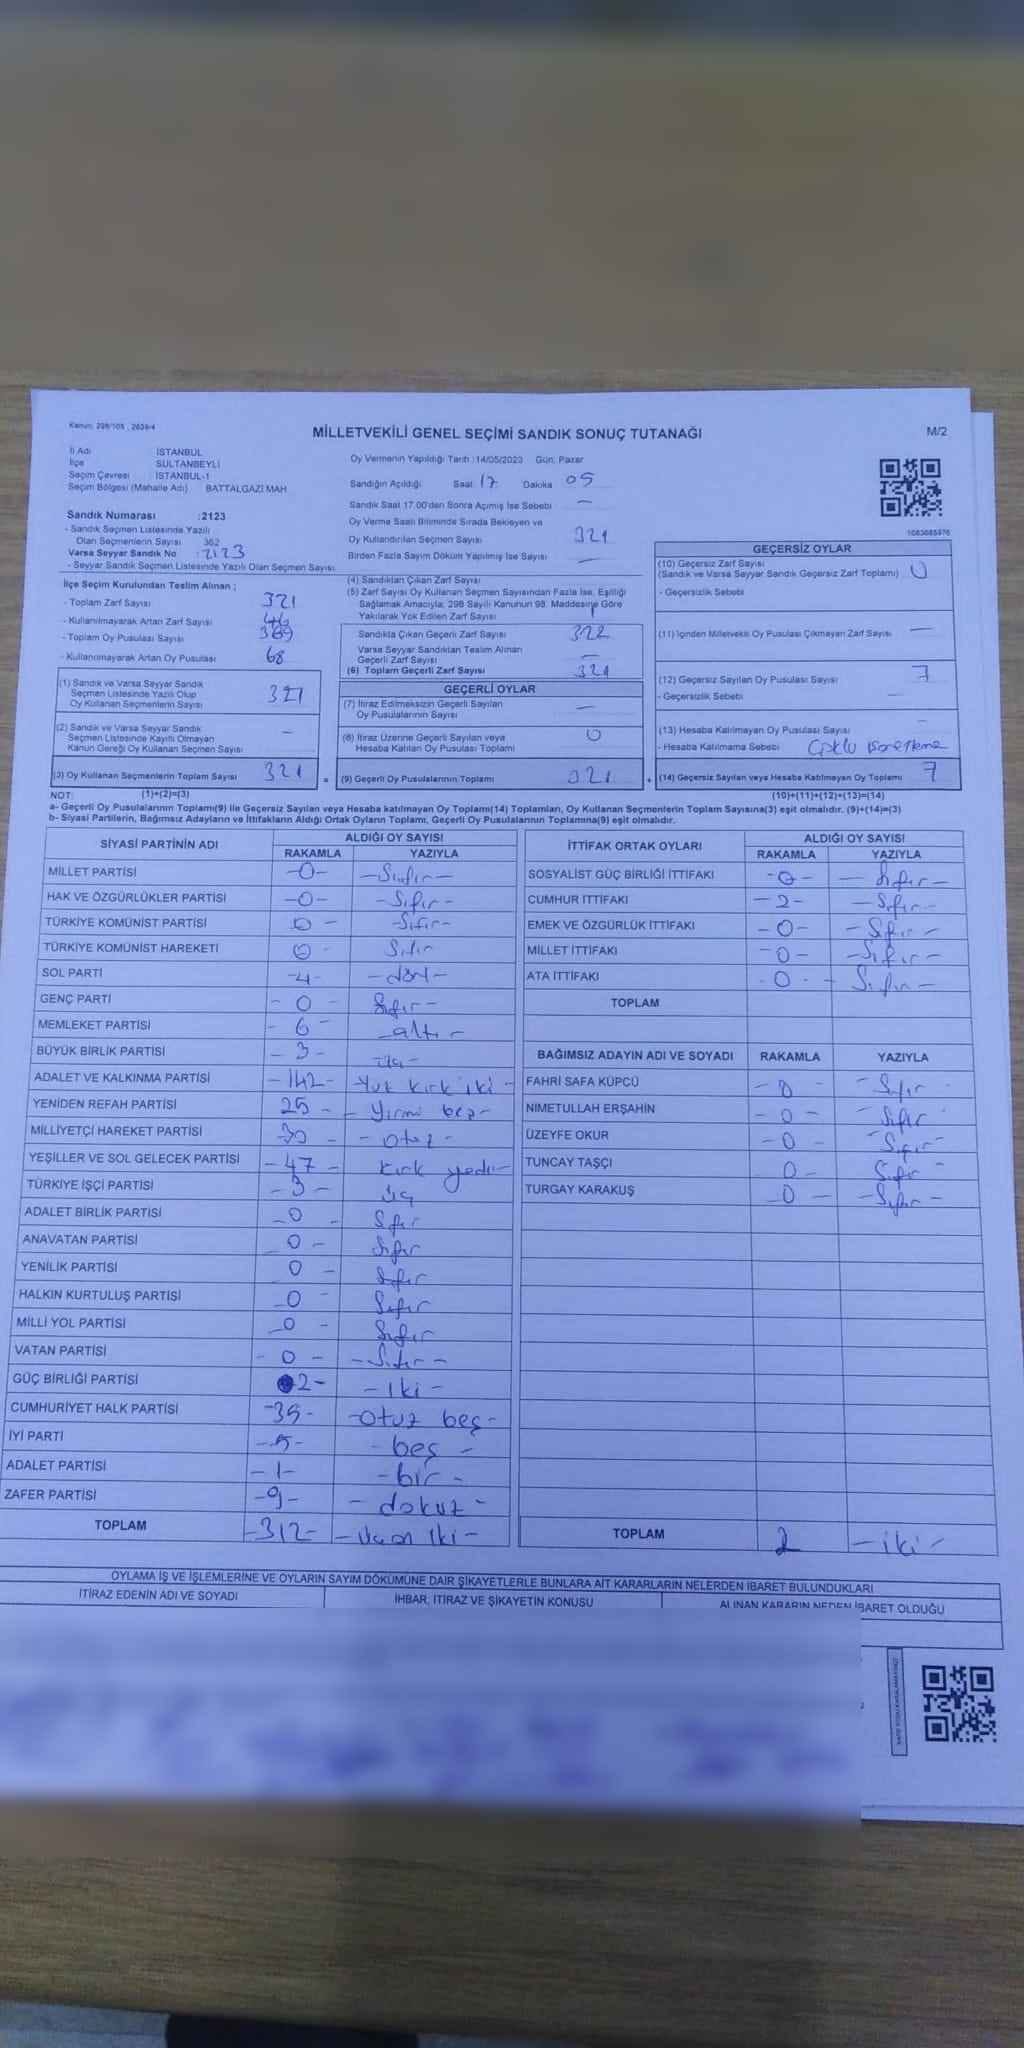 Kanun: 298/105 , 2839/4
MİLLETVEKİLİ GENEL SEÇİMİ SANDIK SONUÇ TUTANAĞI
M/2
İli Adı : İSTANBUL
İlçe : SULTANBEYLİ
Seçim Çevresi : İSTANBUL-1
Seçim Bölgesi (Mahalle Adı) BATTALGAZİ MAH
Sandık Numarası :2123
- Sandık Seçmen Listesinde Yazılı
Olan Seçmenlerin Sayısı 362
Varsa Seyyar Sandık No : 2123
- Seyyar Sandık Seçmen Listesinde Yazılı Olan Seçmen Sayısı
İlçe Seçim Kurulundan Teslim Alınan ;
- Toplam Zarf Sayısı 321
- Kullanılmayarak Artan Zarf Sayısı
- Toplam Oy Pusulası Sayısı 389
- Kullanılmayarak Artan Oy Pusulası 68
(1) Sandık ve Varsa Seyyar Sandık
Seçmen Listesinde Yazılı Olup
Oy Kullanan Seçmenlerin Sayısı 321
(2) Sandık ve Varsa Seyyar Sandık
Seçmen Listesinde Kayıtlı Olmayan
Kanun Gereği Oy Kullanan Seçmen Sayısı –
(3) Oy Kullanan Seçmenlerin Toplam Sayısı 321 =
Oy Vermenin Yapıldığı Tarih :14/05/2023 Gün: Pazar
Sandığın Açıldığı Saat 17 Dakika 05
Sandık Saat 17.00'den Sonra Açılmış İse Sebebi –
Oy Verme Saati Bitiminde Sırada Bekleyen ve
Oy Kullandırılan Seçmen Sayısı 321
Birden Fazla Sayım Döküm Yapılmış İse Sayısı –
(4) Sandıktan Çıkan Zarf Sayısı
(5) Zarf Sayısı Oy Kullanan Seçmen Sayısından Fazla İse, Eşitliği
Sağlamak Amacıyla; 298 Sayılı Kanunun 98. Maddesine Göre
Yakılarak Yok Edilen Zarf Sayısı 1
Sandıkta Çıkan Geçerli Zarf Sayısı 322
Varsa Seyyar Sandıktan Teslim Alınan
Geçerli Zarf Sayısı –
(6) Toplam Geçerli Zarf Sayısı 321
GEÇERLİ OYLAR
(7) İtiraz Edilmeksizin Geçerli Sayılan
Oy Pusulalarının Sayısı –
(8) İtiraz Üzerine Geçerli Sayılan veya
Hesaba Katılan Oy Pusulası Toplamı 0
(9) Geçerli Oy Pusulalarının Toplamı 321 +
1083685976
GEÇERSİZ OYLAR
(10) Geçersiz Zarf Sayısı
(Sandık ve Varsa Seyyar Sandık Geçersiz Zarf Toplamı) 0
- Geçersizlik Sebebi
(11) İçinden Milletvekili Oy Pusulası Çıkmayan Zarf Sayısı –
(12) Geçersiz Sayılan Oy Pusulası Sayısı 7
- Geçersizlik Sebebi –
(13) Hesaba Katılmayan Oy Pusulası Sayısı –
- Hesaba Katılmama Sebebi Çoklu işaretleme
(14) Geçersiz Sayılan veya Hesaba Katılmayan Oy Toplamı 7
NOT: (1)+(2)=(3) (10)+(11)+(12)+(13)=(14)
a- Geçerli Oy Pusulalarının Toplamı(9) ile Geçersiz Sayılan veya Hesaba katılmayan Oy Toplamı(14) Toplamları, Oy Kullanan Seçmenlerin Toplam Sayısına(3) eşit olmalıdır. (9)+(14)=(3)
b- Siyasi Partilerin, Bağımsız Adayların ve İttifakların Aldığı Ortak Oyların Toplamı, Geçerli Oy Pusulalarının Toplamına(9) eşit olmalıdır.
SİYASİ PARTİNİN ADI ALDIĞI OY SAYISI
RAKAMLA YAZIYLA
MİLLET PARTİSİ -0- -Sıfır-
HAK VE ÖZGÜRLÜKLER PARTİSİ -0- -Sıfır-
TÜRKİYE KOMÜNİST PARTİSİ 0 - -Sıfır-
TÜRKİYE KOMÜNİST HAREKETİ 0 - Sıfır
SOL PARTİ -4- -dört-
GENÇ PARTİ - 0 - Sıfır-
MEMLEKET PARTİSİ - 6 - -altı-
BÜYÜK BİRLİK PARTİSİ - 3 - üç-
ADALET VE KALKINMA PARTİSİ -142- -Yüz kırk iki-
YENİDEN REFAH PARTİSİ 25 - - yirmi beş-
MİLLİYETÇİ HAREKET PARTİSİ -30 - otuz -
YEŞİLLER VE SOL GELECEK PARTİSİ -47 - kırk yedi-
TÜRKİYE İŞÇİ PARTİSİ -3 - üç
ADALET BİRLİK PARTİSİ -0 - Sıfır
ANAVATAN PARTİSİ -0 - Sıfır
YENİLİK PARTİSİ 0 - Sıfır
HALKIN KURTULUŞ PARTİSİ -0 - Sıfır
MİLLİ YOL PARTİSİ -0 - Sıfır
VATAN PARTİSİ - 0 - -Sıfır-
GÜÇ BİRLİĞİ PARTİSİ 2- -İki-
CUMHURİYET HALK PARTİSİ -35- -Otuz beş-
İYİ PARTİ -5- -beş-
ADALET PARTİSİ -1- -bir-
ZAFER PARTİSİ -9- -dokuz-
TOPLAM -312- -Üçon iki-
İTTİFAK ORTAK OYLARI ALDIĞI OY SAYISI
RAKAMLA YAZIYLA
SOSYALİST GÜÇ BİRLİĞİ İTTİFAKI -0- - Sıfır-
CUMHUR İTTİFAKI -2- -Sıfır-
EMEK VE ÖZGÜRLÜK İTTİFAKI -0- -Sıfır-
MİLLET İTTİFAKI -0- -Sıfır-
ATA İTTİFAKI -0- - Sıfır-
TOPLAM
BAĞIMSIZ ADAYIN ADI VE SOYADI RAKAMLA YAZIYLA
FAHRİ SAFA KÜPCÜ -0- -Sıfır-
NİMETULLAH ERŞAHİN -0- -Sıfır
ÜZEYFE OKUR -0- -Sıfır-
TUNCAY TAŞÇI 0- Sıfır
TURGAY KARAKUŞ -0- -Sıfır-
TOPLAM 2 -iki-
OYLAMA İŞ VE İŞLEMLERİNE VE OYLARIN SAYIM DÖKÜMÜNE DAİR ŞİKAYETLERLE BUNLARA AİT KARARLARIN NELERDEN İBARET BULUNDUKLARI
İTİRAZ EDENİN ADI VE SOYADI İHBAR, İTİRAZ VE ŞİKAYETİN KONUSU ALINAN KARARIN NEDEN İBARET OLDUĞU